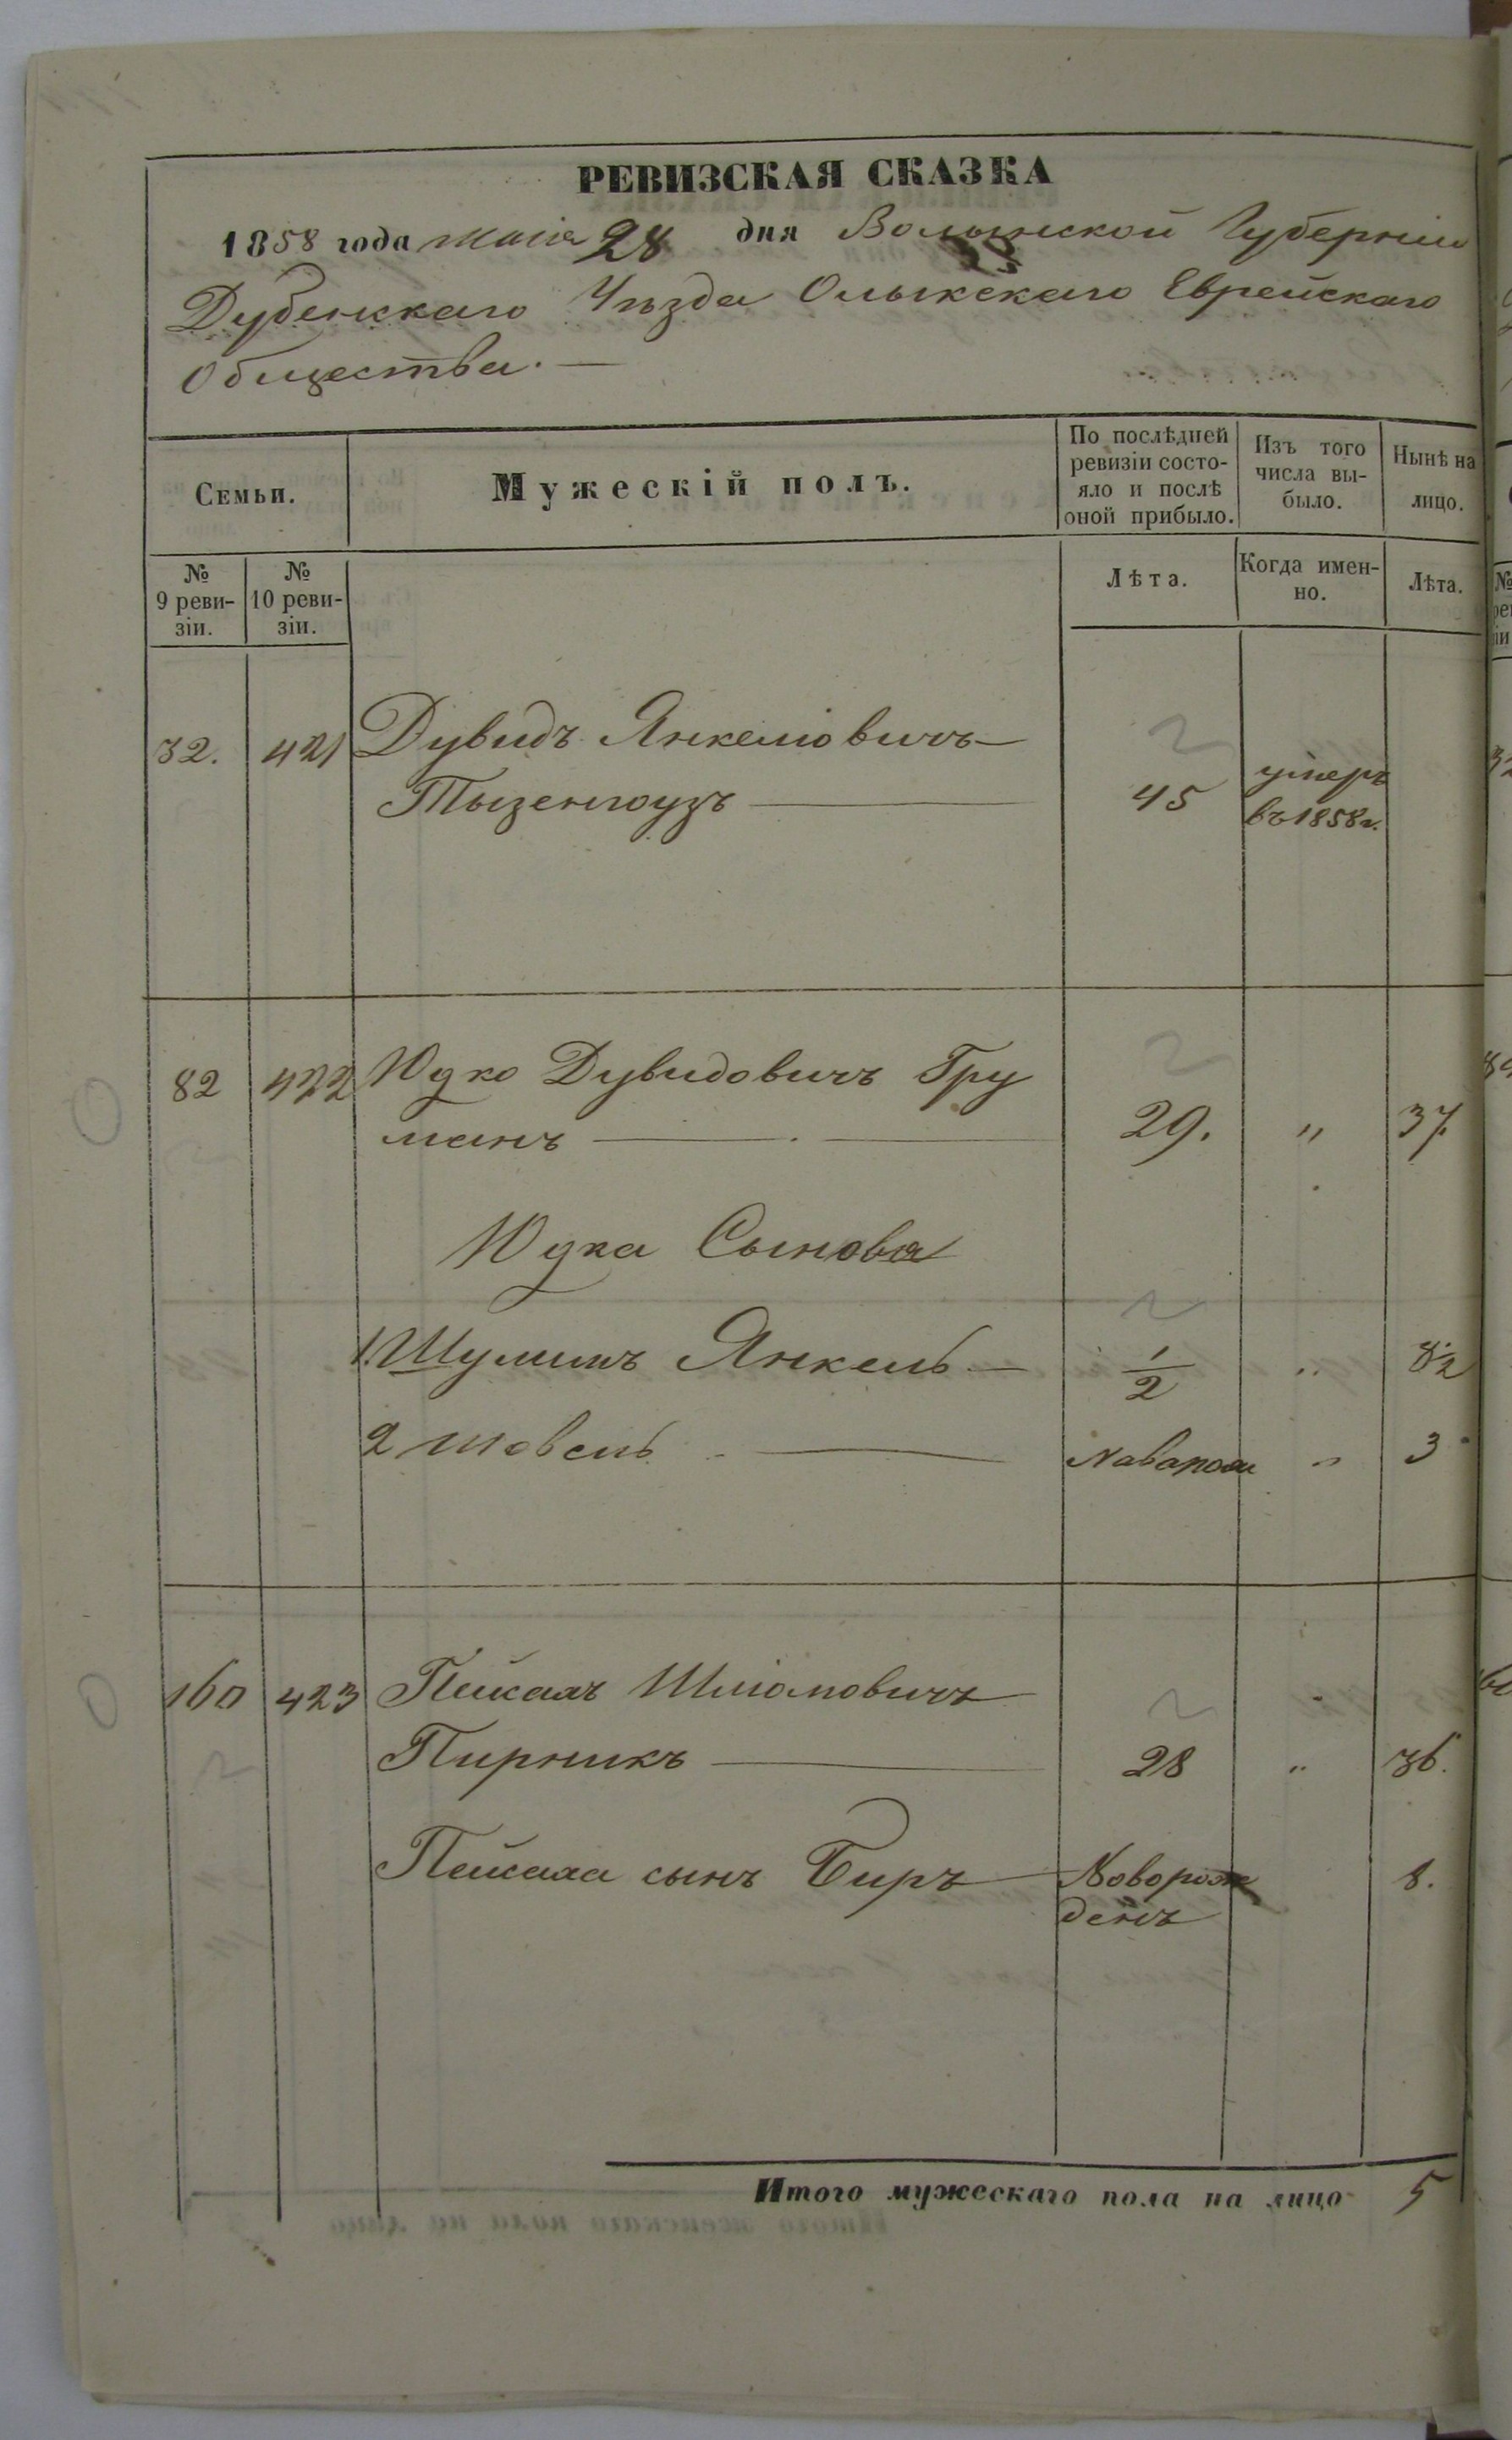 РЕВИЗСКАЯ СКАЗКА
1858 года маія 28 дня Волынской Губерніи
Дубенскаго Уѣзда Олыкскаго Еврейскаго
Общества. —
Семьи.
Мужескій полъ.
По послѣдней
ревизіи состо-
яло и послѣ
оной прибыло.
Изъ того
числа вы-
было.
Нынѣ на
лицо.
№
9 реви-
зіи.
№
10 реви-
зіи.
Лѣта.
Когда имен-
но.
Лѣта.
32. 421 Дувидъ Янкеліовичъ — умеръ
Тызенгоузъ — 45 въ 1858 г.
82 422 Юдко Дувидовичъ Гру
манъ — 29. " 37.
Юдка Сынова
1. Шулимъ Янкель — 1/2 " 8 1/2
2 Шовель — " 3
160 423 Пейсахъ Шліомовичъ
Пирникъ — 28 " 36.
Пейсаха сынъ Биръ — Новорож 8.
денъ
Итого мужескаго пола на лицо 5